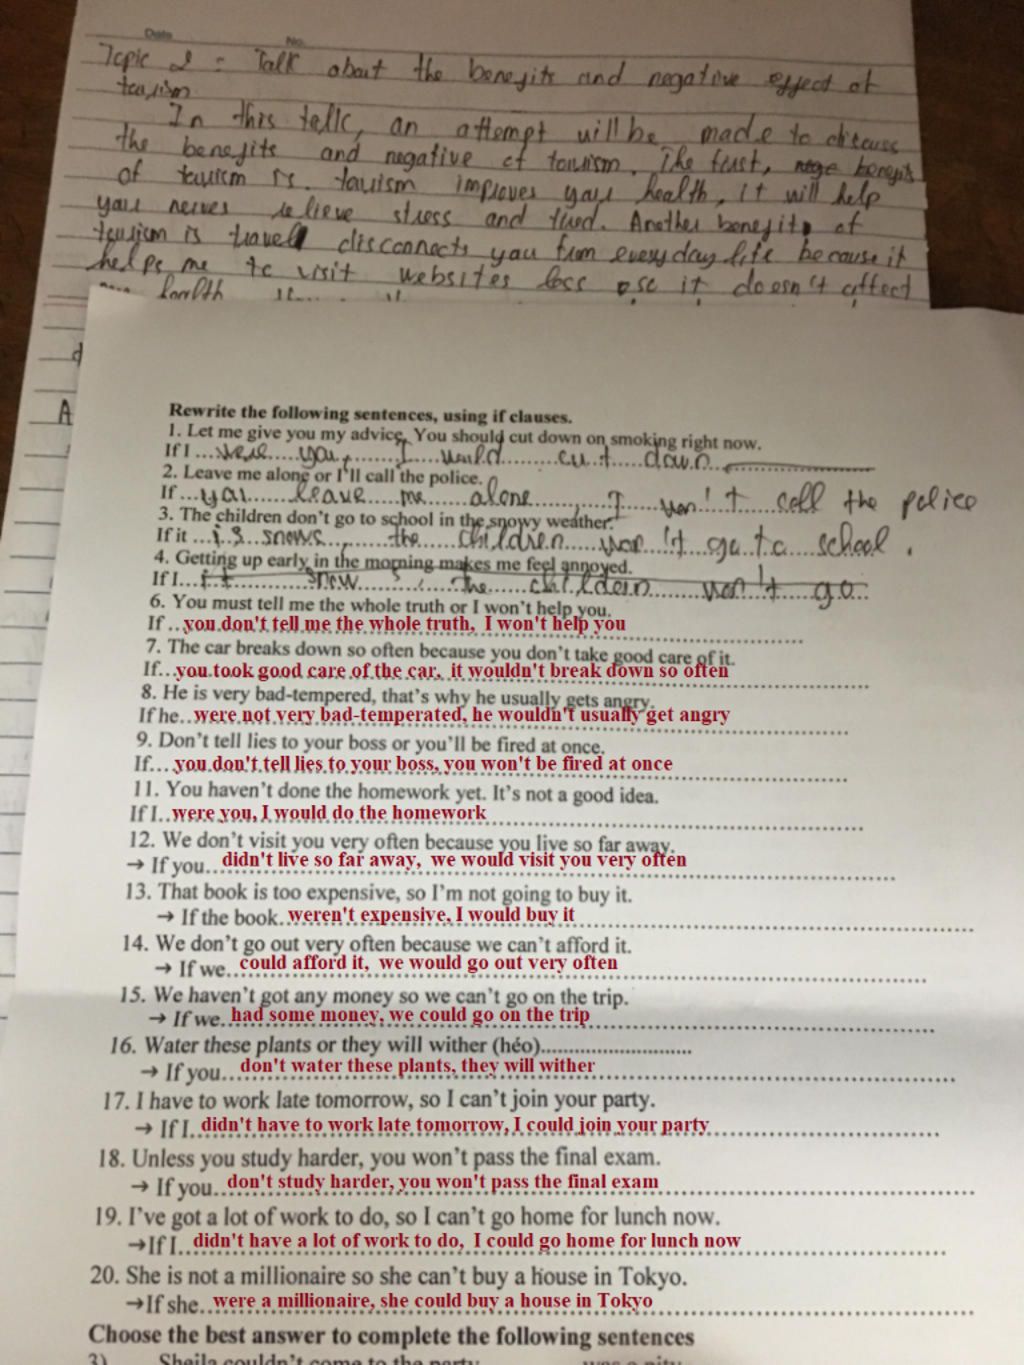 Date No.
Topic 2 : Talk about the benefits and negative effect of
tourism
In this talk, an attempt will be made to discuss
the benefits and negative of tourism. The first, benefits
of tourism is. tourism improves your health, it will help
your nerves relieve stress and tired. Another benefit of
tourism is travel disconnects you from everyday life because it
helps me to visit websites less it doesn't affect
health
A
Rewrite the following sentences, using if clauses.
1. Let me give you my advice. You should cut down on smoking right now.
If I ...were you, I would cut down
2. Leave me alone or I'll call the police.
If...you leave me alone, I won't call the police
3. The children don't go to school in the snowy weather.
If it ...is snows, the children won't go to school.
4. Getting up early in the morning makes me feel annoyed.
If I...it snow, the childern won't go...
6. You must tell me the whole truth or I won't help you.
If ..you don't tell me the whole truth, I won't help you
7. The car breaks down so often because you don't take good care of it.
If...you took good care of the car, it wouldn't break down so often
8. He is very bad-tempered, that's why he usually gets angry.
If he..were not very bad-temperated, he wouldn't usually get angry
9. Don't tell lies to your boss or you'll be fired at once.
If....you don't tell lies to your boss, you won't be fired at once
11. You haven't done the homework yet. It's not a good idea.
If I..were you, I would do the homework
12. We don't visit you very often because you live so far away.
→ If you...didn't live so far away, we would visit you very often
13. That book is too expensive, so I'm not going to buy it.
→ If the book..weren't expensive, I would buy it
14. We don't go out very often because we can't afford it.
→ If we..could afford it, we would go out very often
15. We haven't got any money so we can't go on the trip.
→ If we..had some money, we could go on the trip
16. Water these plants or they will wither (héo)............................
→ If you...don't water these plants, they will wither
17. I have to work late tomorrow, so I can't join your party.
→ If I..didn't have to work late tomorrow, I could join your party
18. Unless you study harder, you won't pass the final exam.
→ If you..don't study harder, you won't pass the final exam
19. I've got a lot of work to do, so I can't go home for lunch now.
→If I..didn't have a lot of work to do, I could go home for lunch now
20. She is not a millionaire so she can't buy a house in Tokyo.
→If she..were a millionaire, she could buy a house in Tokyo
Choose the best answer to complete the following sentences
3) Sheila couldn't come to the party